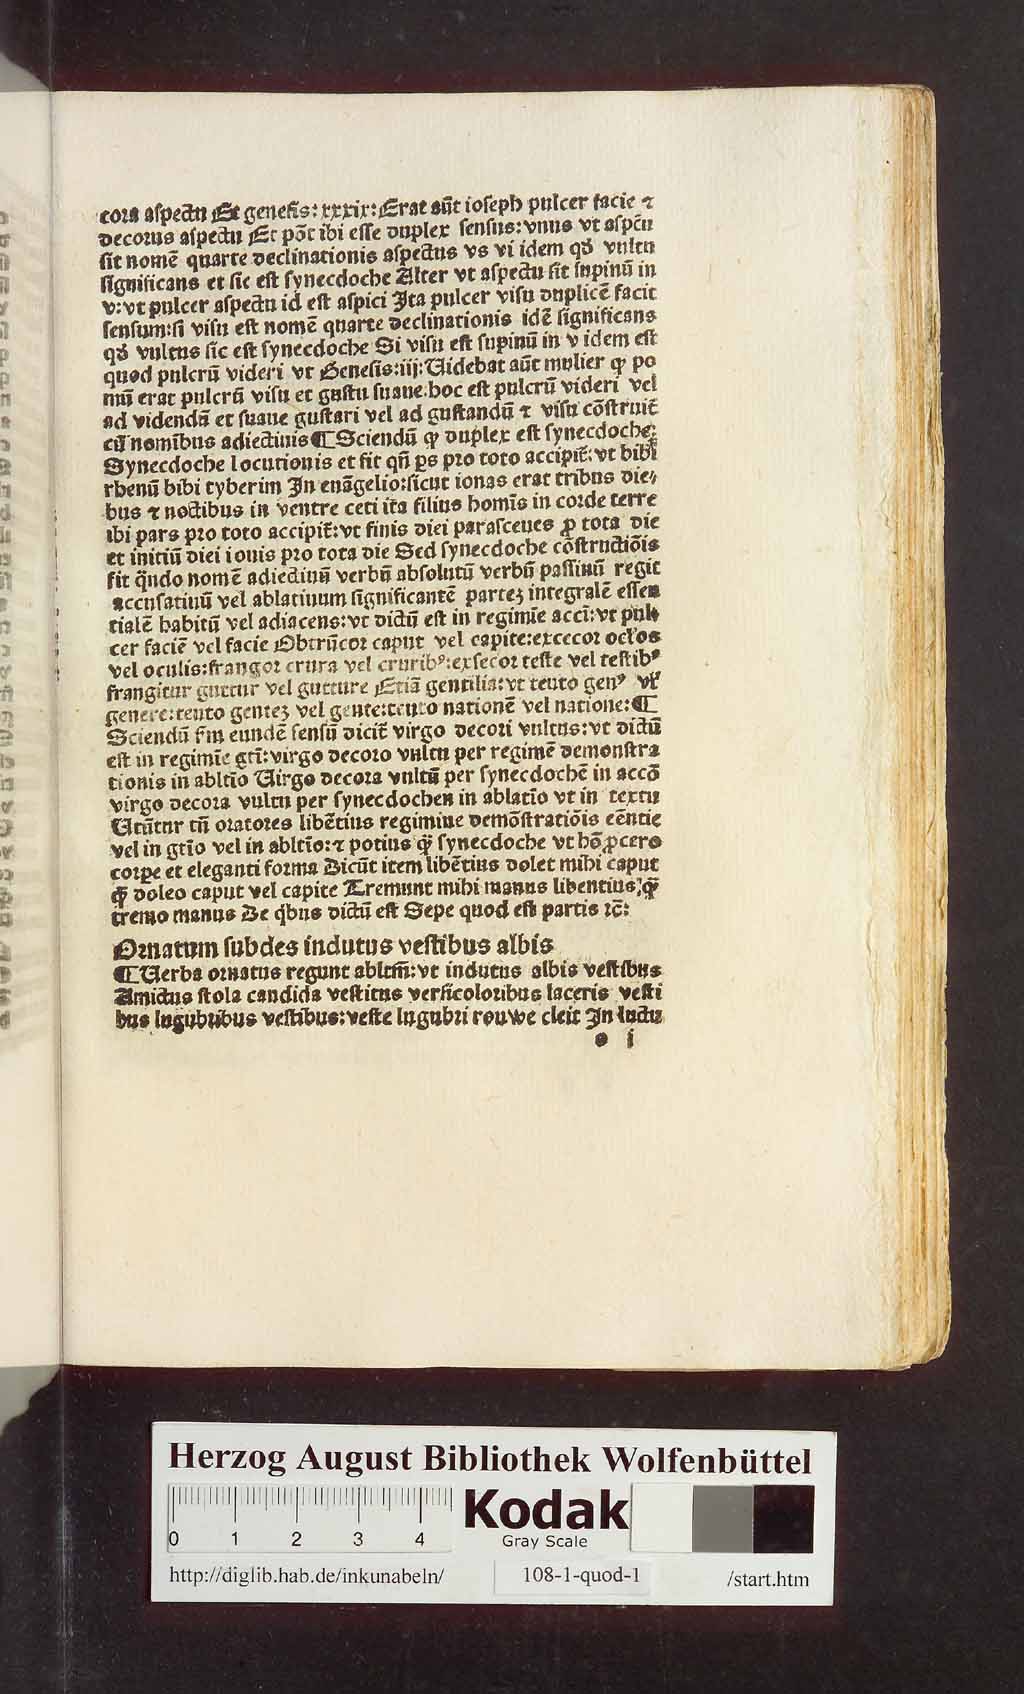 cora aspectu Et genesis: xxxix: Erat aūt ioseph pulcer facie ⁊
decorus aspectu Et pōt ibi esse duplex sensus: vnus vt aspc̄u
sit nomē quarte declinationis aspectus vs vi idem qđ vultu
significans et sic est synecdoche Alter vt aspectu sit supinū in
v: vt pulcer aspectu id est aspici Ita pulcer visu duplicē facit
sensum: si visu est nomē quarte declinationis idē significans
qđ vultus sic est synecdoche Si visu est supinū in v idem est
quod pulcrū videri vt Genesis: iij: Uidebat aūt mulier ꝙ po
mū erat pulcrū visu et gustu suaue: hoc est pulcrū videri vel
ad videndū et suaue gustari vel ad gustandū ⁊ visu cōstruit̄
cū nomībus adiectiuis ¶ Sciendū ꝙ duplex est synecdoche:
Synecdoche locutionis et fit qn̄ ps pro toto accipit̄: vt bibi
rhenū bibi tyberim In euāgelio: sicut ionas erat tribus die⸗
bus ⁊ noctibus in ventre ceti ita filius homīs in corde terre
ibi pars pro toto accipit̄: vt finis diei parasceues ꝓ tota die
et initiū diei iouis pro tota die Sed synecdoche cōstructiōis
fit qn̄do nomē adiectiuū verbū absolutū verbū passiuū regit
accusatiuū vel ablatiuum significantē parteꝫ integralē essen
tialē habitū vel adiacens: vt dictū est in regimīe acc̄i: vt pul
cer faciē vel facie Obtrūcor caput vel capite: excecor oc̄los
vel oculis: frangor crura vel crurib⁹: exsecor teste vel testib⁹
frangitur guttur vel gutture Etiā gentilia: vt teuto gen⁹ vl̄
genere: teuto genteꝫ vel gente: teuto nationē vel natione: ¶
Sciendū s̄m eundē sensū dicit̄ virgo decori vultus: vt dictū
est in regimīe gt̄i: virgo decoro vultu per regimē demonstra
tionis in ablt̄io Uirgo decora vultū per synecdochē in accō
virgo decora vultu per synecdochen in ablatīo vt in textu
Utūtur tn̄ oratores libētius regimiue demōstratiōis eēntie
vel in gt̄io vel in ablt̄io: ⁊ potius q̄ synecdoche vt hō ꝓcero
corꝑe et eleganti forma Dicūt item libētius dolet mihi caput
q̄ doleo caput vel capite Tremunt mihi manus libentius: q̄
tremo manus De q̇bus dictū est Sepe quod est partis ⁊c̄:
Ornatum subdes indutus vestibus albis
¶ Uerba ornatus regunt abltm̄: vt indutus albis vestibus
Amictus stola candida vestitus versicoloribus laceris vesti
bus lugubribus vestibus: veste lugubri rouwe cleit In luctu
o i
Herzog August Bibliothek Wolfenbüttel
0 1 2 3 4
Kodak
Gray Scale
http://diglib.hab.de/inkunabeln/ 108-1-quod-1 /start.htm